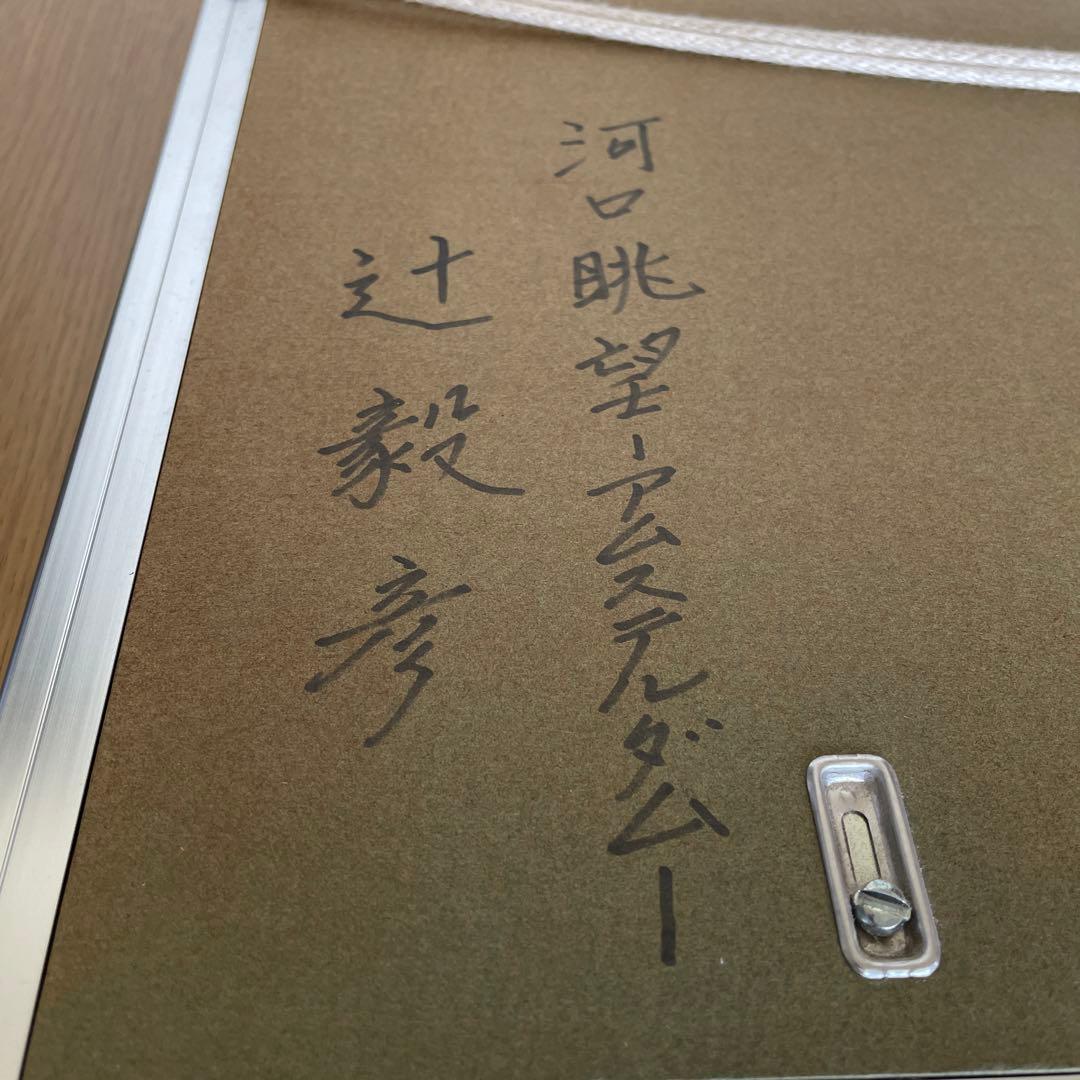 河口眺望ーアムステルダムー
辻毅彦